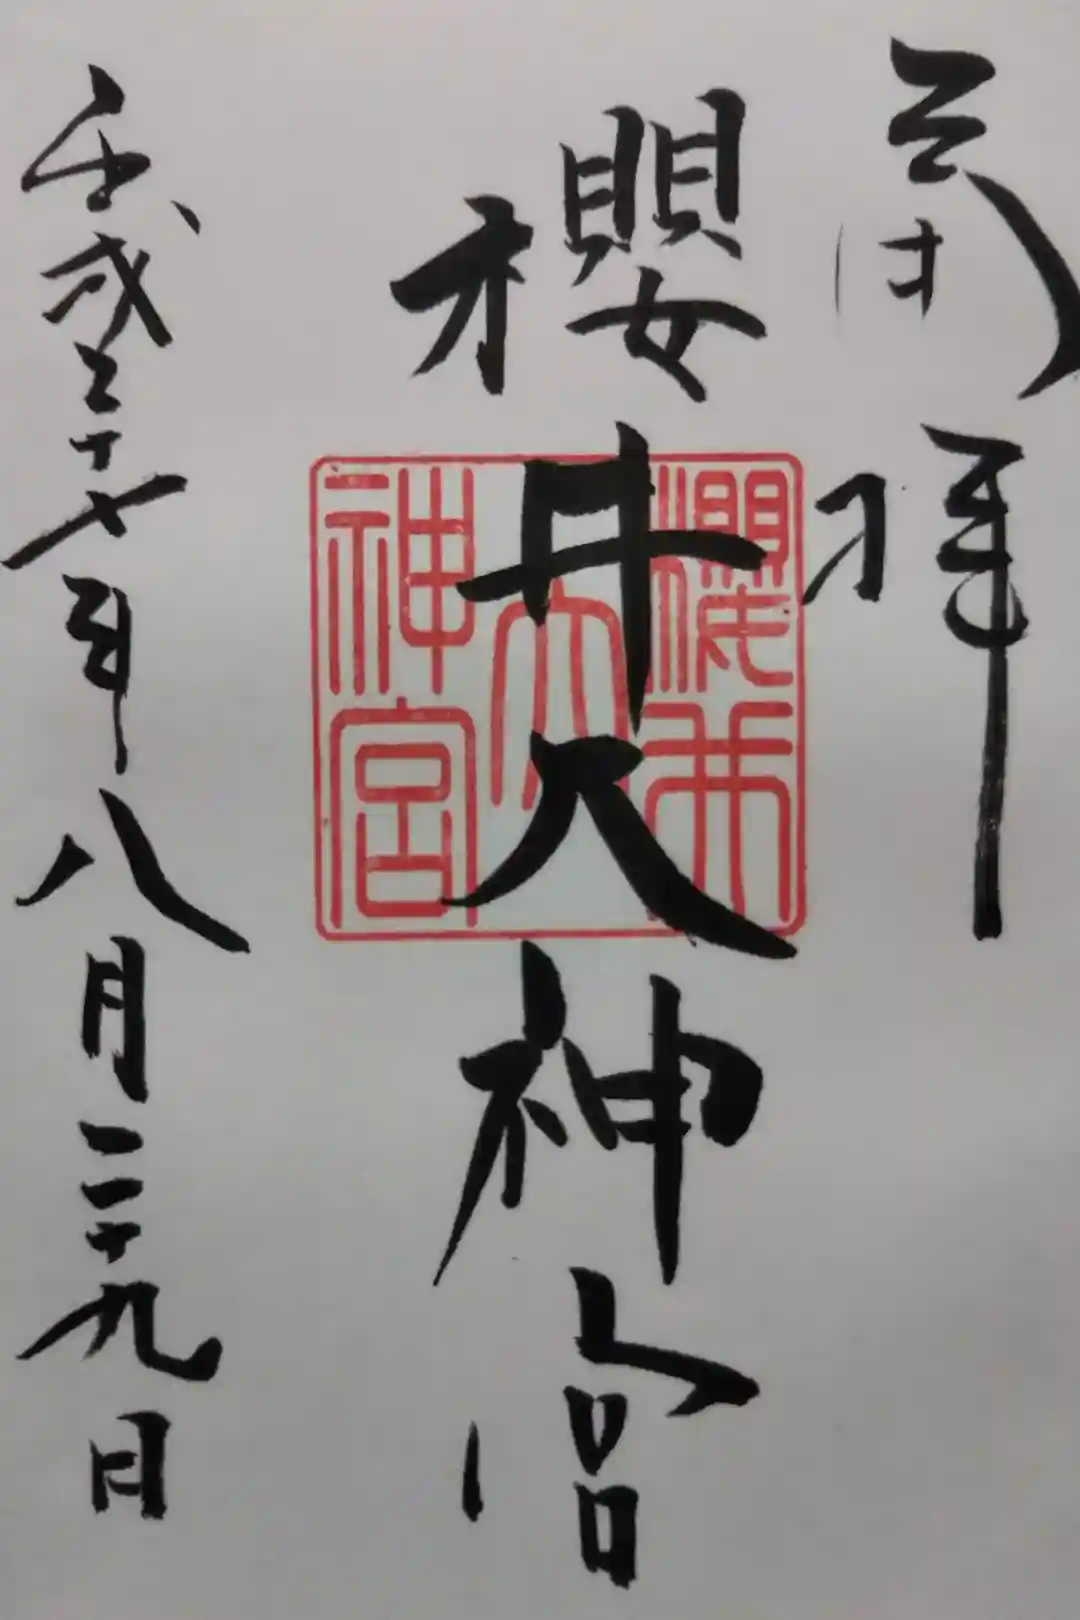 奉拝
櫻井大神宮
櫻井大神宮
平成二十七年八月二十九日